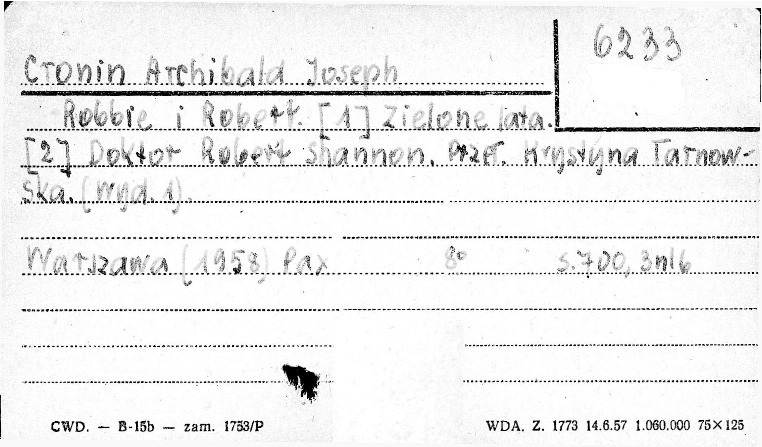 6233
Cronin Archibald Joseph
Robbie i Robert. [1] Zielone lata.
[2] Doktor Robert Shannon. Przeł. Krystyna Tarnow-
ska. (Wyd. 1).
Warszawa (1958) Pax 8° s. 700, 3nlb
CWD. — B-15b — zam. 1753/P WDA. Z. 1773 14.6.57 1.060.000 75×125